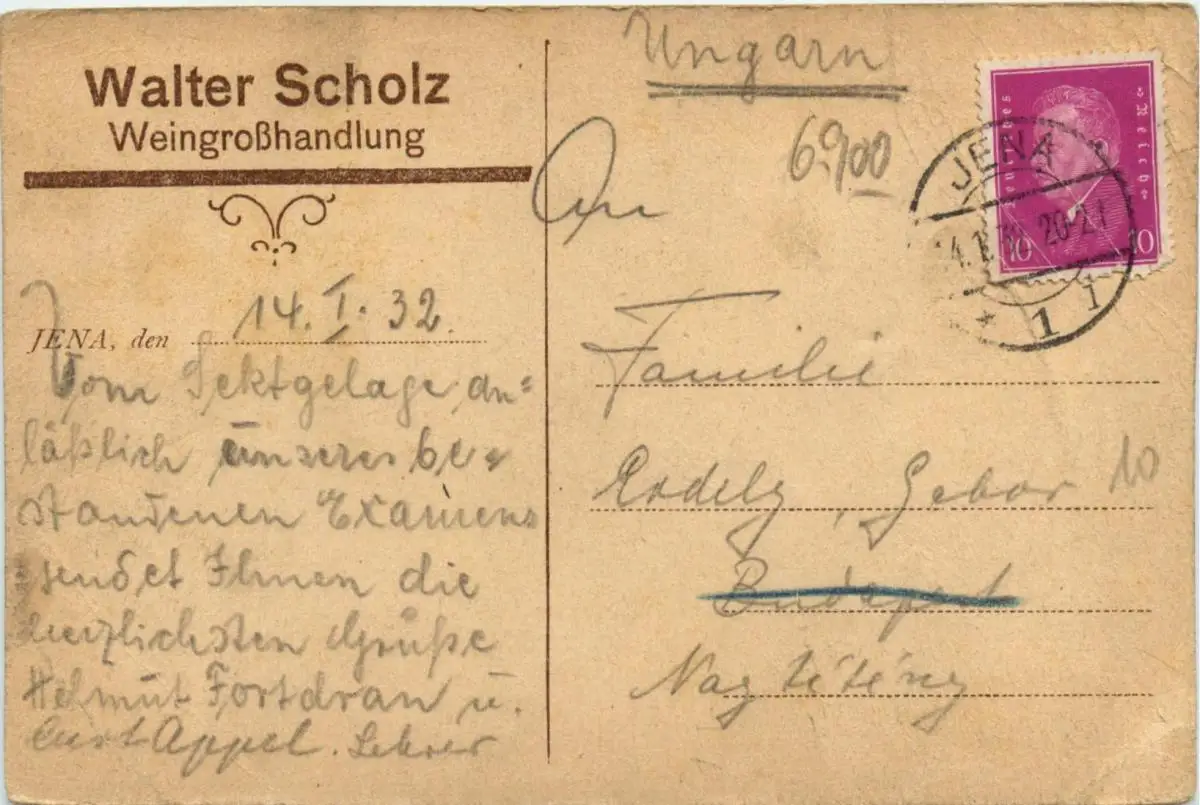 Walter Scholz
Weingroßhandlung
JENA, den 14. I. 32.
Vom Sektgelage an=
läßlich unseres be=
standenen Examens
sendet Ihnen die
herzlichsten Grüße
Helmut Fortdran u.
Curt Appel. Lehrer
Ungarn
6.900
An
Familie
Erdely, Gabor 10
Budapest
Nagytétény
Deutsches Reich
10 10
JENA
14.1.32 20-21
* 1 i